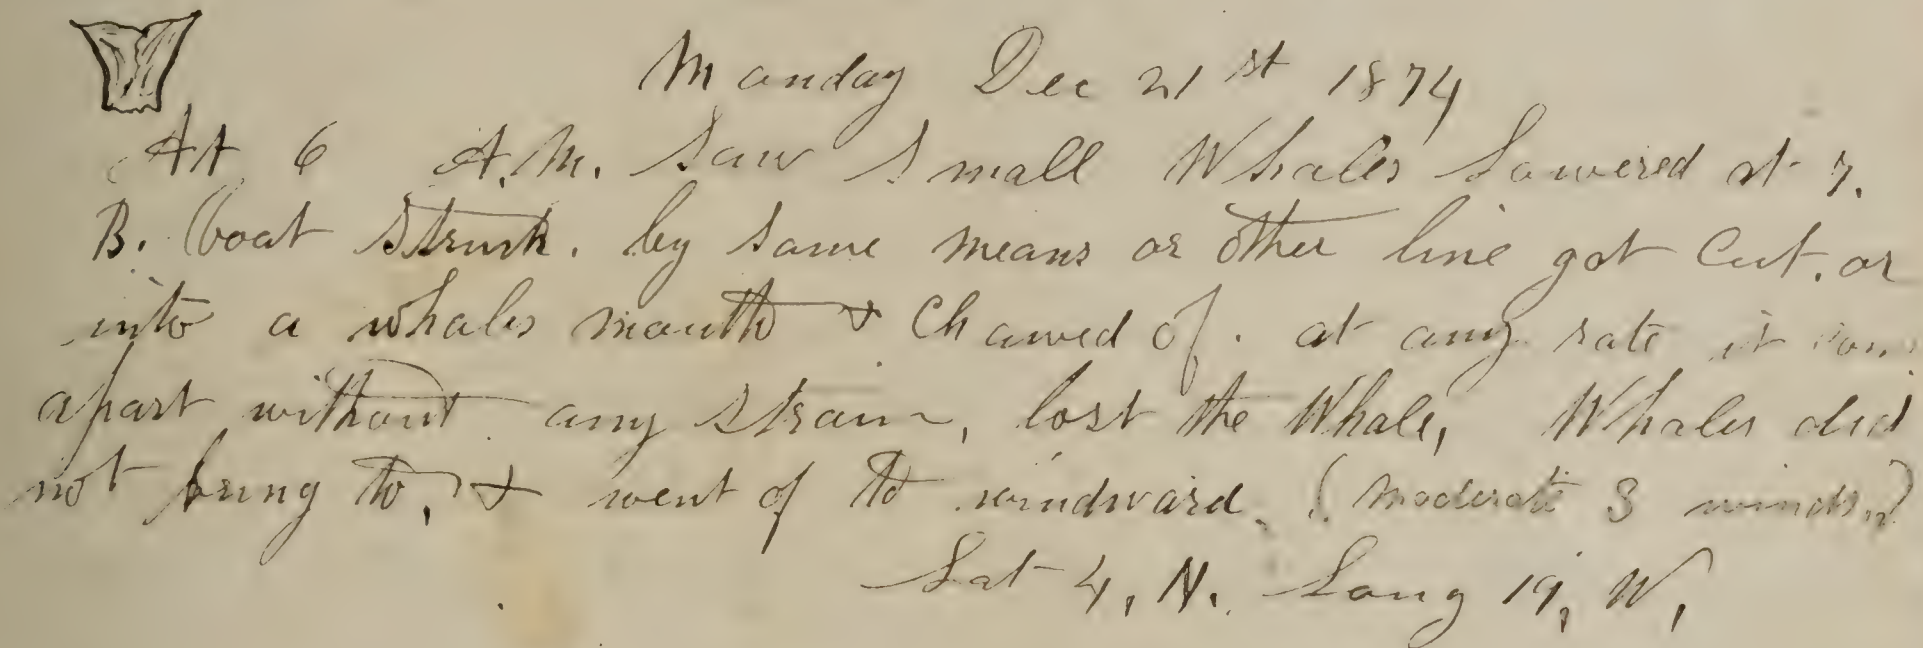 Monday Dec 21st 1874
At 6 A.M. Saw Small Whales Lowered at 7.
B. boat Struck. by some means or other line got Cut. or
into a whales mouth & Chawed of. at any rate it
apart without any Strain, lost the Whale, Whales did
not bring to, & went of to windward. (Moderate S winds.)
Lat 4, N. Long 19, W,